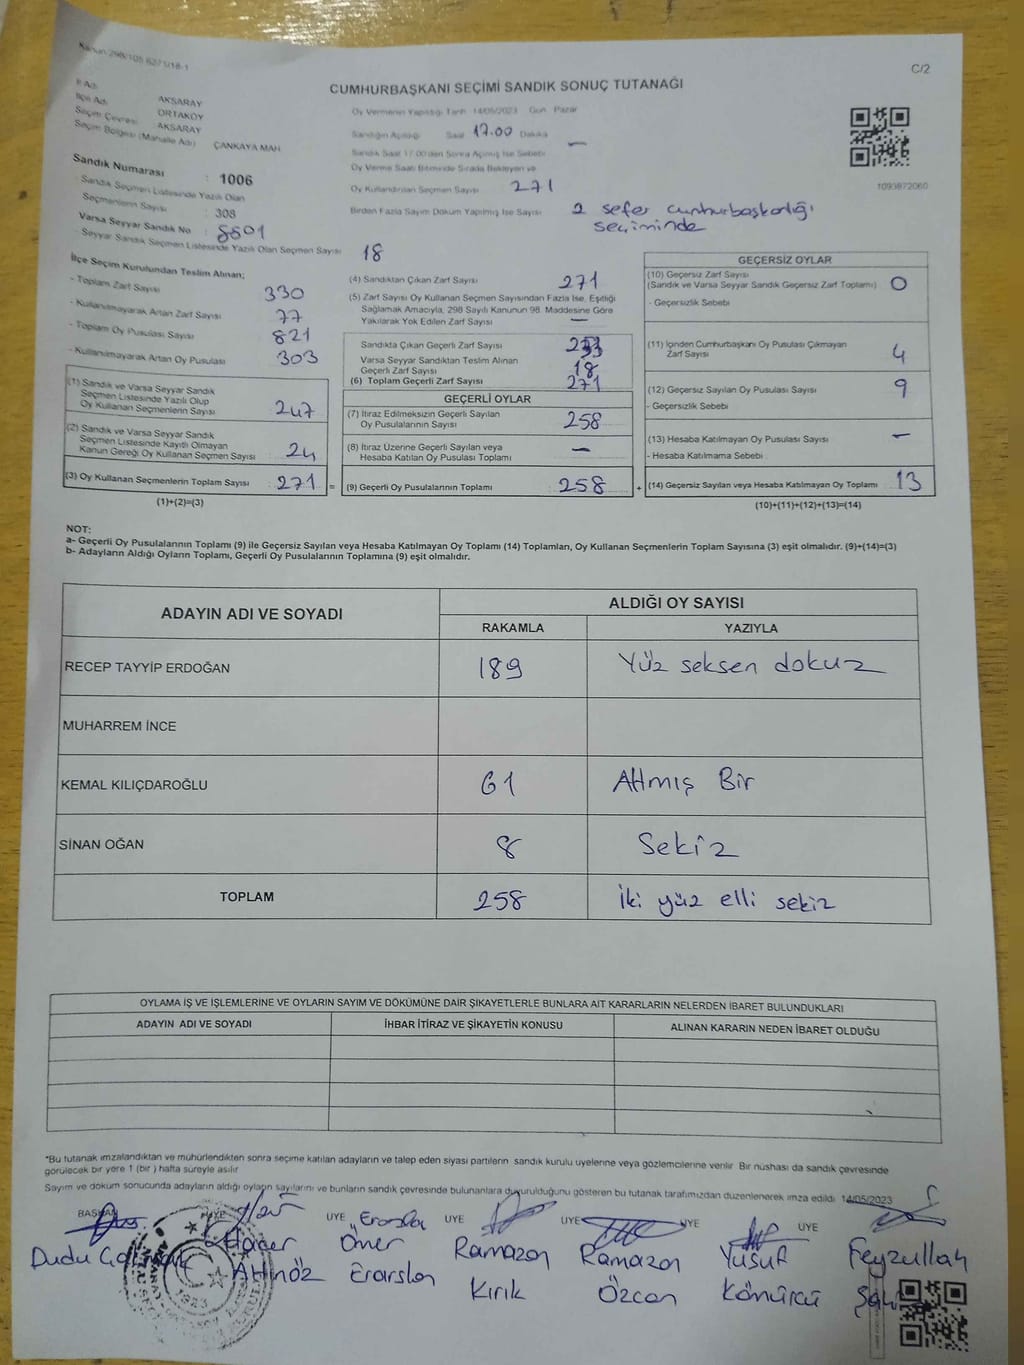 Kanun 298/105 6271/18-1
C/2
CUMHURBAŞKANI SEÇİMİ SANDIK SONUÇ TUTANAĞI
İl Adı
İlçe Adı : AKSARAY
Seçim Çevresi : ORTAKÖY
Seçim Bölgesi (Mahalle Adı) AKSARAY
ÇANKAYA MAH
Sandık Numarası : 1006
Sandık Seçmen Listesinde Yazılı Olan
Seçmenlerin Sayısı : 308
Varsa Seyyar Sandık No : 8801
Seyyar Sandık Seçmen Listesinde Yazılı Olan Seçmen Sayısı 18
Oy Vermenin Yapıldığı Tarih 14/05/2023 Gün Pazar
Sandığın Açıldığı Saat 17.00 Dakika
Sandık Saat 17:00'den Sonra Açılmış İse Sebebi —
Oy Verme Saati Bitiminde Sırada Bekleyen ve
Oy Kullandırılan Seçmen Sayısı 271
Birden Fazla Sayım Döküm Yapılmış İse Sayısı 2 sefer cumhurbaşkanlığı
seçiminde
1093872060
İlçe Seçim Kurulundan Teslim Alınan;
- Toplam Zarf Sayısı 330
- Kullanılmayarak Artan Zarf Sayısı 77
- Toplam Oy Pusulası Sayısı 821
- Kullanılmayarak Artan Oy Pusulası 303
(1) Sandık ve Varsa Seyyar Sandık
Seçmen Listesinde Yazılı Olup
Oy Kullanan Seçmenlerin Sayısı 247
(2) Sandık ve Varsa Seyyar Sandık
Seçmen Listesinde Kayıtlı Olmayan
Kanun Gereği Oy Kullanan Seçmen Sayısı 24
(3) Oy Kullanan Seçmenlerin Toplam Sayısı 271 =
(1)+(2)=(3)
(4) Sandıktan Çıkan Zarf Sayısı 271
(5) Zarf Sayısı Oy Kullanan Seçmen Sayısından Fazla İse, Eşitliği
Sağlamak Amacıyla, 298 Sayılı Kanunun 98. Maddesine Göre
Yakılarak Yok Edilen Zarf Sayısı —
Sandıkta Çıkan Geçerli Zarf Sayısı
Varsa Seyyar Sandıktan Teslim Alınan
Geçerli Zarf Sayısı 18
(6) Toplam Geçerli Zarf Sayısı 271
GEÇERLİ OYLAR
(7) İtiraz Edilmeksizin Geçerli Sayılan
Oy Pusulalarının Sayısı 258
(8) İtiraz Üzerine Geçerli Sayılan veya
Hesaba Katılan Oy Pusulası Toplamı —
(9) Geçerli Oy Pusulalarının Toplamı 258 +
GEÇERSİZ OYLAR
(10) Geçersiz Zarf Sayısı
(Sandık ve Varsa Seyyar Sandık Geçersiz Zarf Toplamı) 0
- Geçersizlik Sebebi
(11) İçinden Cumhurbaşkanı Oy Pusulası Çıkmayan
Zarf Sayısı 4
(12) Geçersiz Sayılan Oy Pusulası Sayısı 9
- Geçersizlik Sebebi
(13) Hesaba Katılmayan Oy Pusulası Sayısı —
- Hesaba Katılmama Sebebi
(14) Geçersiz Sayılan veya Hesaba Katılmayan Oy Toplamı 13
(10)+(11)+(12)+(13)=(14)
NOT:
a- Geçerli Oy Pusulalarının Toplamı (9) ile Geçersiz Sayılan veya Hesaba Katılmayan Oy Toplamı (14) Toplamları, Oy Kullanan Seçmenlerin Toplam Sayısına (3) eşit olmalıdır. (9)+(14)=(3)
b- Adayların Aldığı Oyların Toplamı, Geçerli Oy Pusulalarının Toplamına (9) eşit olmalıdır.
ADAYIN ADI VE SOYADI
ALDIĞI OY SAYISI
RAKAMLA YAZIYLA
RECEP TAYYİP ERDOĞAN 189 Yüz seksen dokuz
MUHARREM İNCE
KEMAL KILIÇDAROĞLU 61 Altmış Bir
SİNAN OĞAN 8 Sekiz
TOPLAM 258 İki yüz elli sekiz
OYLAMA İŞ VE İŞLEMLERİNE VE OYLARIN SAYIM VE DÖKÜMÜNE DAİR ŞİKAYETLERLE BUNLARA AİT KARARLARIN NELERDEN İBARET BULUNDUKLARI
ADAYIN ADI VE SOYADI İHBAR İTİRAZ VE ŞİKAYETİN KONUSU ALINAN KARARIN NEDEN İBARET OLDUĞU
*Bu tutanak imzalandıktan ve mühürlendikten sonra seçime katılan adayların ve talep eden siyasi partilerin sandık kurulu üyelerine veya gözlemcilerine verilir. Bir nüshası da sandık çevresinde
görülecek bir yere 1 (bir) hafta süreyle asılır
Sayım ve döküm sonucunda adayların aldığı oyların sayılarını ve bunların sandık çevresinde bulunanlara duyurulduğunu gösteren bu tutanak tarafımızdan düzenlenerek imza edildi. 14/05/2023
BAŞKAN ÜYE ÜYE ÜYE ÜYE ÜYE ÜYE
Dudu Ömer Ramazan Ramazan Yusuf Feyzullah
Altınöz Erarslan Kırık Özcan Kömürcü
1923